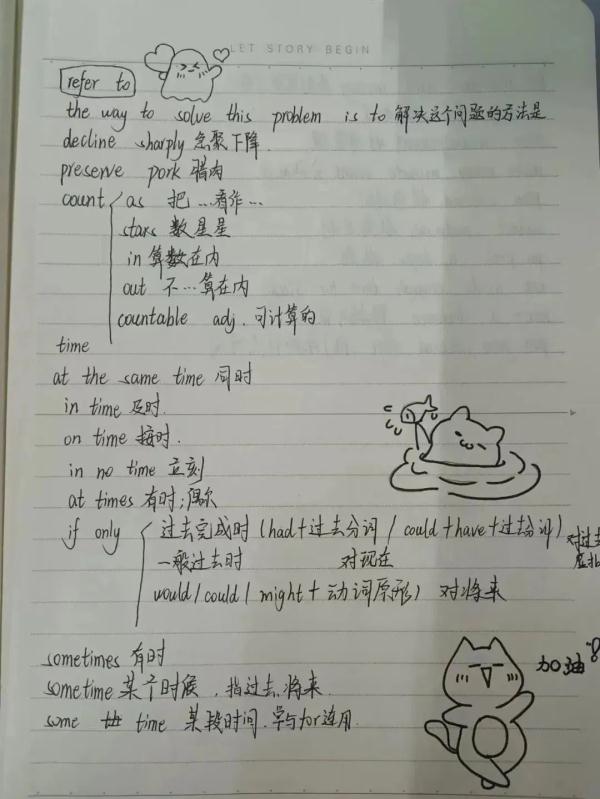 LET STORY BEGIN
refer to
the way to solve this problem is to 解决这个问题的方法是
decline sharply 急聚下降.
preserve pork 腊肉
count as 把...看作...
stars 数星星
in 算数在内
out 不...算在内
countable adj. 可计算的
time
at the same time 同时
in time 及时.
on time 按时.
in no time 立刻
at times 有时;偶尔
if only 过去完成时 (had+过去分词 / could+have+过去分词) 对过去
一般过去时 对现在
would / could / might + 动词原形) 对将来
sometimes 有时
sometime 某个时候, 指过去.将来.
some time 某段时间.常与for连用.
加油